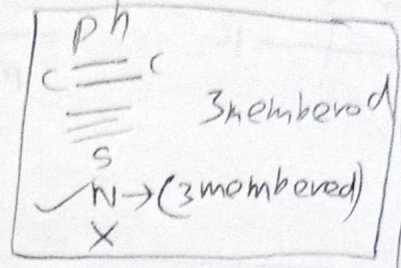 Ph
C C
3membered
S
N → (3membered)
X